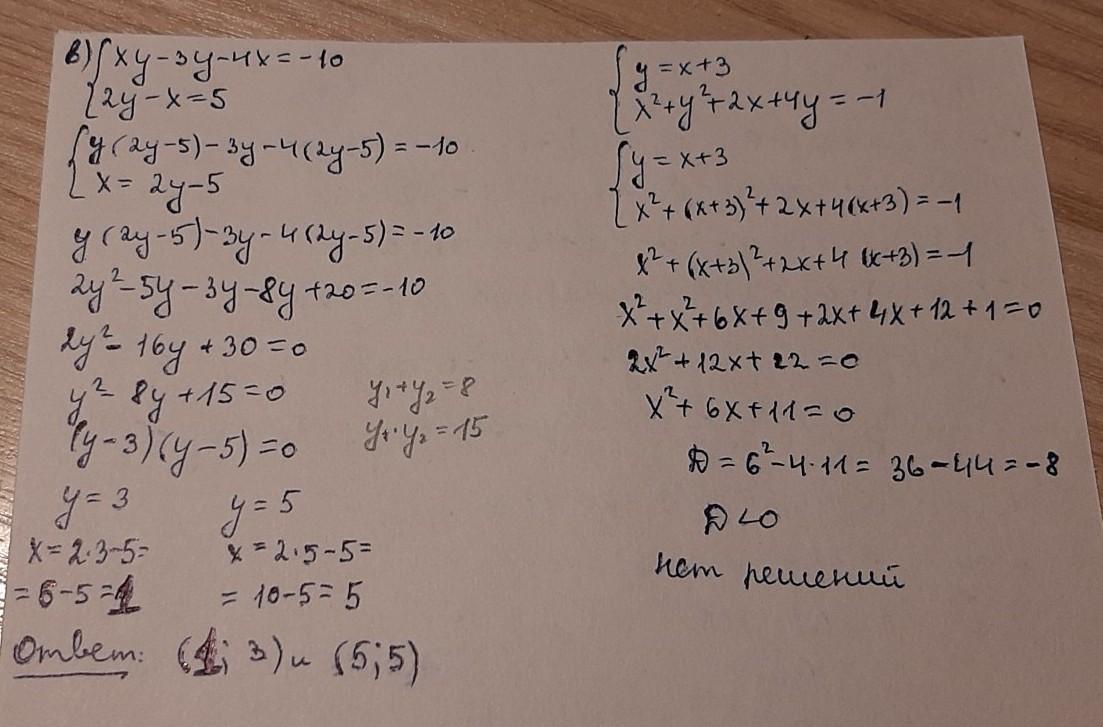 в) { xy-3y-4x=-10
{ 2y-x=5
{ y(2y-5)-3y-4(2y-5)=-10
{ x=2y-5
y(2y-5)-3y-4(2y-5)=-10
2y²-5y-3y-8y+20=-10
2y²-16y+30=0
y²-8y+15=0
y₁+y₂=8
(y-3)(y-5)=0
y₁·y₂=15
y=3 y=5
x=2·3-5= x=2·5-5=
=6-5=1 =10-5=5
Ответ: (1; 3) и (5; 5)
{ y=x+3
{ x²+y²+2x+4y=-1
{ y=x+3
{ x²+(x+3)²+2x+4(x+3)=-1
x²+(x+3)²+2x+4(x+3)=-1
x²+x²+6x+9+2x+4x+12+1=0
2x²+12x+22=0
x²+6x+11=0
D=6²-4·11=36-44=-8
D<0
нет решений